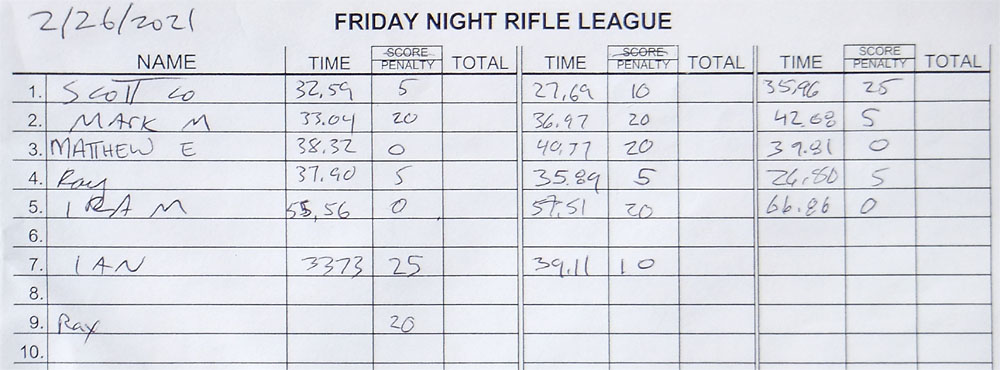 2/26/2021 FRIDAY NIGHT RIFLE LEAGUE
NAME TIME SCORE PENALTY TOTAL TIME SCORE PENALTY TOTAL TIME SCORE PENALTY TOTAL
1. SCOTT CO 32.59 5 27.69 10 35.96 25
2. MARK M 33.04 20 36.97 20 42.68 5
3. MATTHEW E 38.32 0 40.77 20 39.81 0
4. Ray 37.90 5 35.89 5 26.80 5
5. IRA M 55.56 0 57.51 20 66.86 0
6.
7. IAN 3373 25 39.11 10
8.
9. Ray 20
10.